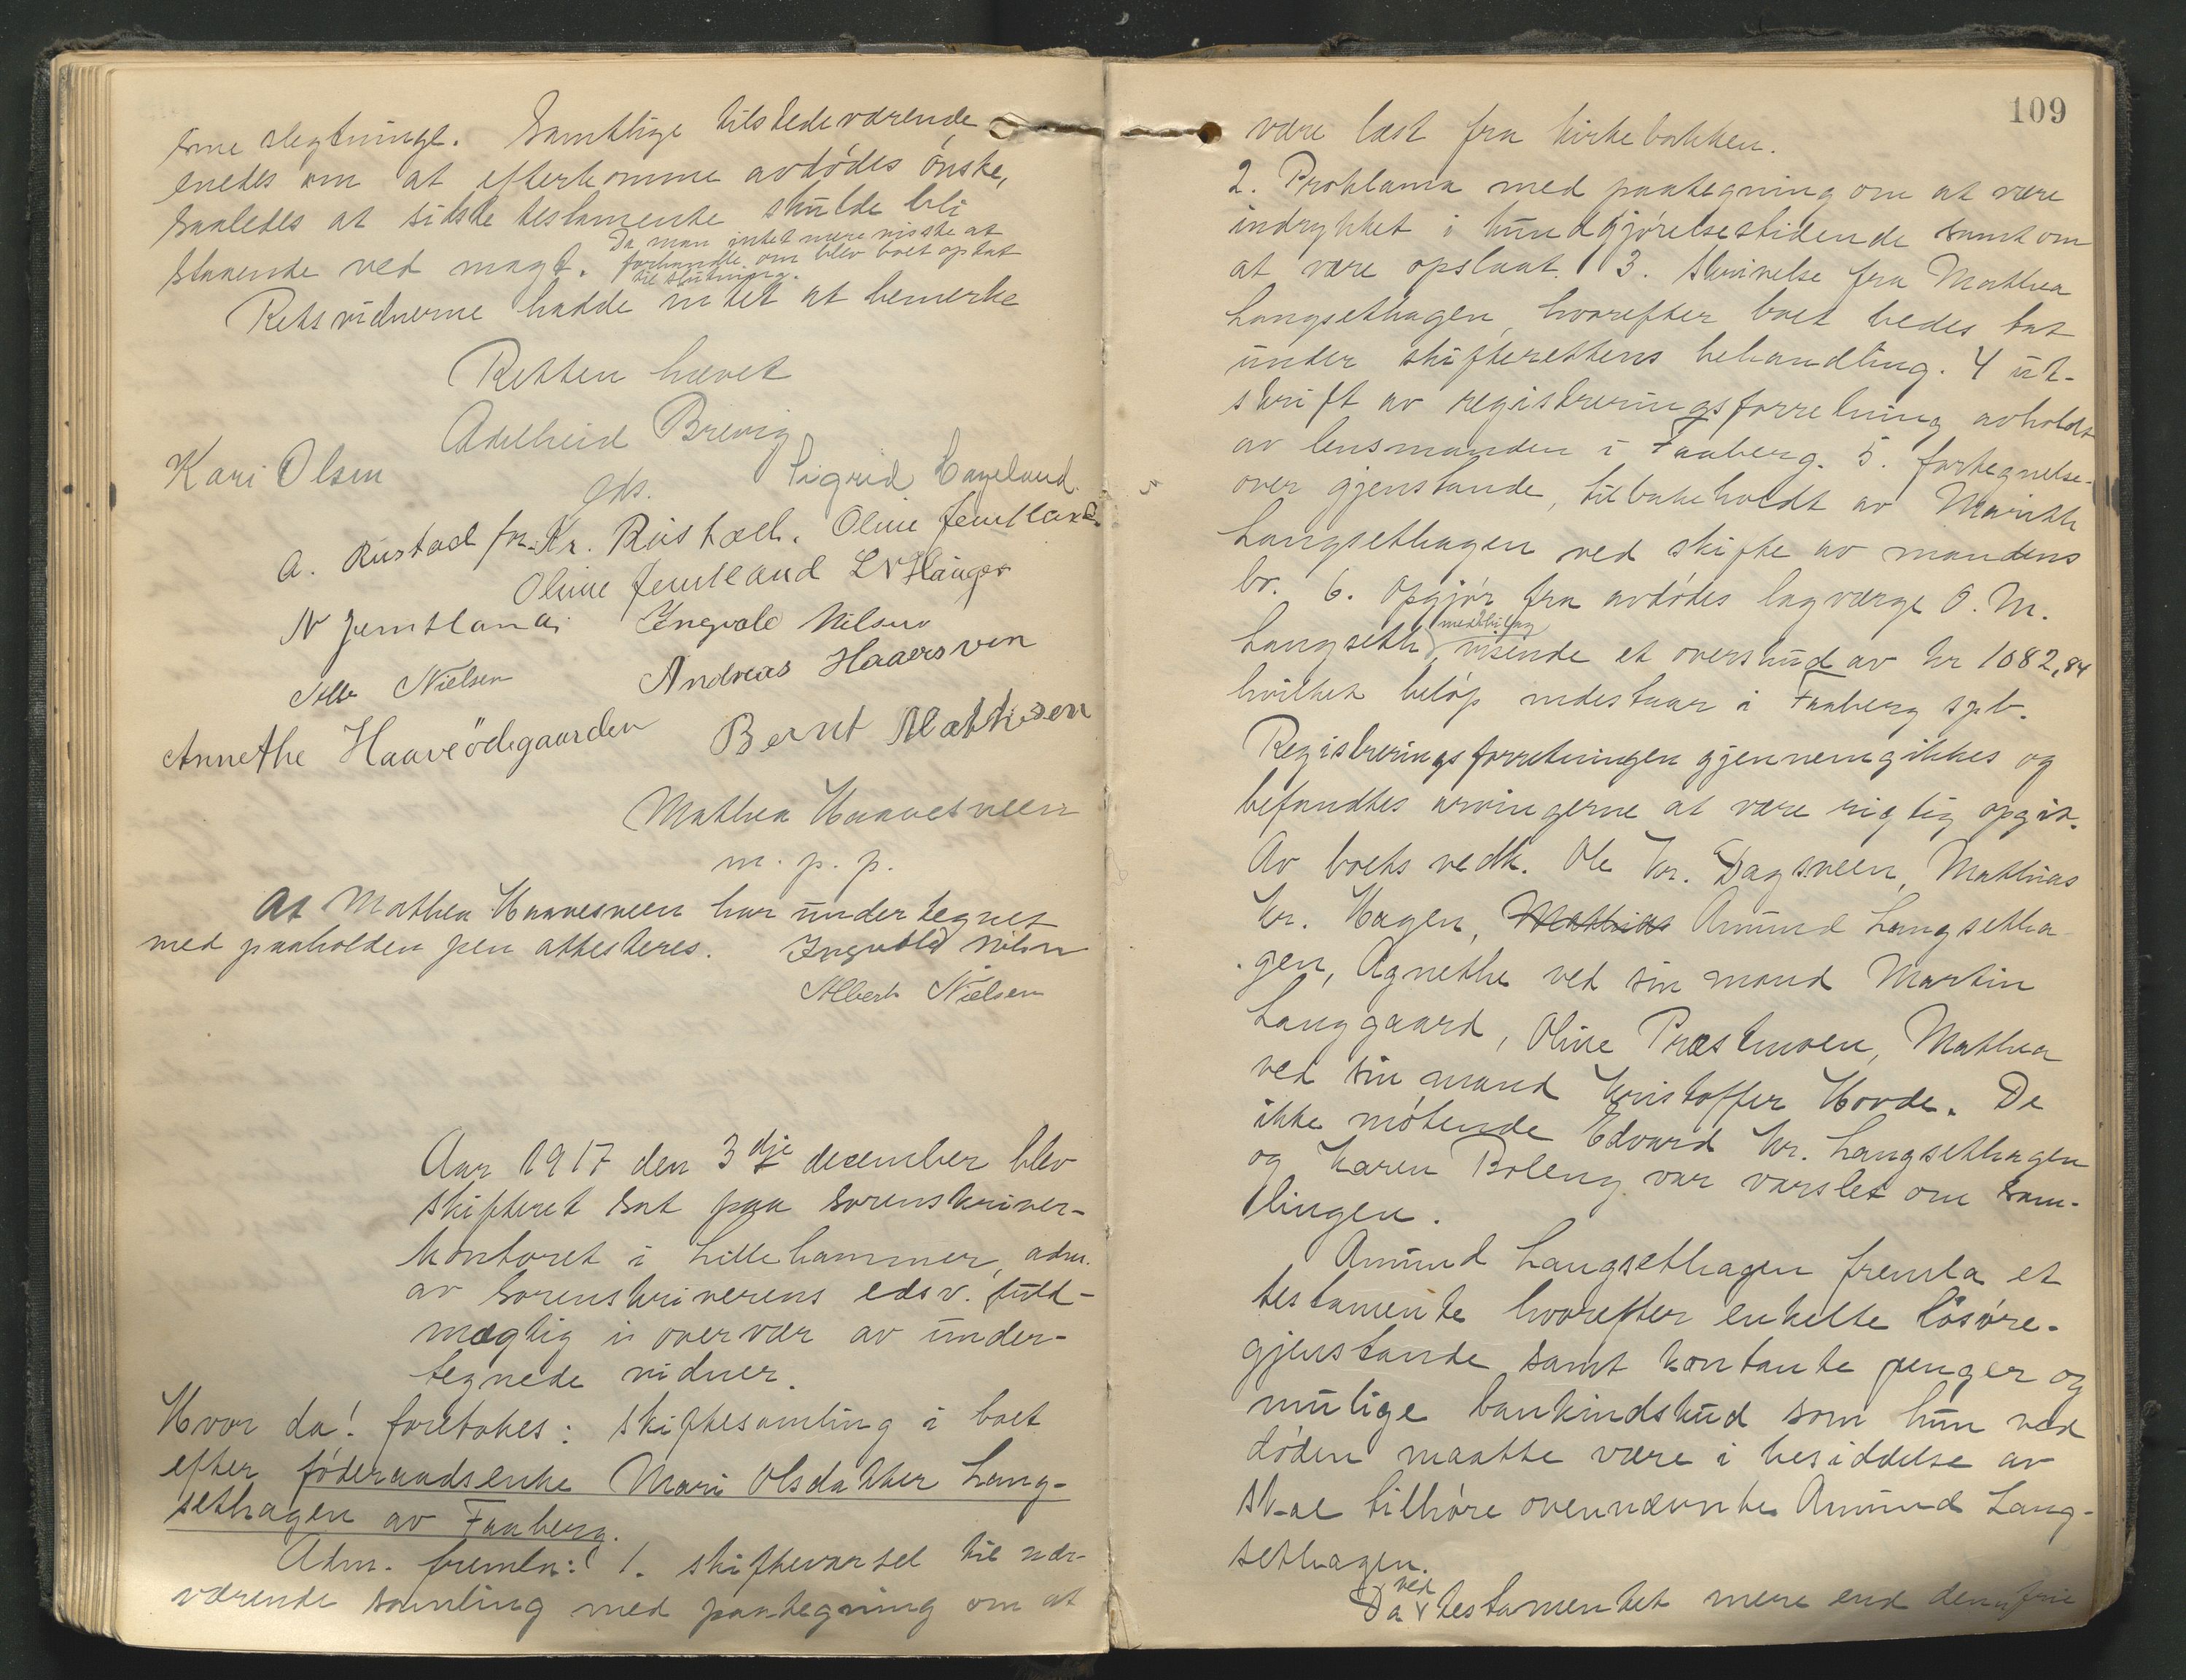 sine slegtninge. Samtlige tilstedeværende
enedes om at efterkomme avdødes ønske,
saaledes at sidste testamente skulde bli
staaende ved magt. Da man intet mere visste at
forhandle om blev boet optat
til slutning.
Retsvidnerne hadde intet at bemerke
Retten hævet
Adelheid Brevig
eds.
Kari Olsen Sigrid Hageland.
A. Rustad fr. Kr. Rustad. Oline Jemtland
Oline Jemtland L N Hauger
N Jemtland Ingvald Nilsen
Nielsen Andreas Haarsven
Annethe Haaveödegaarden Bernt Mathisen
Mathea Haavesveen
m. p. p.
At Mathea Haavesveen har undertegnet
med paaholden pen attesteres. Ingvald Nilsen
Albert Nielsen
Aar 1917 den 3dje december blev
skifteret sat paa sorenskriver-
kontoret i Lillehammer, adm.
av sorenskriverens edsv. fuld-
mægtig i overvær av under-
tegnede vidner.
Hvor da! foretokes: skiftesamling i boet
efter föderaadsenke Mari Olsdatter Lang-
sethagen av Faaberg.
Adm. fremla: 1. skiftevarsel til nær-
værende samling med paategning om at
109
være læst fra kirkebakken.
2. Proklama med paategning om at være
indrykket i kundgjørelsestidende samt om
at være opslaat. 3. Skrivelse fra Mathea
Langsethagen, hvorefter boet bedes tat
under skifterettens behandling. 4 ut-
skrift av registreringsforretning avholdt
av lensmanden i Faaberg. 5. fortegnelse
over gjenstande, tilbakeholdt av Marith
Langsethagen ved skifte av mandens
bo. 6. Opgjør fra avdødes lagværge O. M.
Langseth med bilag visende et overskud av kr 1082,84
hvilket beløp indestaar i Faaberg spb.
Registreringsforretningen gjennemgikkes og
befandtes arvingerne at være rigtig opgit.
Av boets vedk. Ole Kr. Dagsveen, Mathias
Kr. Hagen, Mathias Amund Langsetha-
gen, Agnethe ved sin mand Martin
Langgaard, Oline Præstmoen, Mathea
ved sin mand Kristoffer Hovde. De
ikke møtende Edvard Kr. Langsethagen
og Karen Boleng var varslet om sam-
lingen.
Amund Langsethagen fremla et
testamente hvorefter enkelte løsøre-
gjenstande samt kontante penger og
mulige bankindskud som hun ved
døden maatte være i besiddelse av
skal tilhøre ovennævnte Amund Lang-
sethagen.
Da ved testamentet mere end den frie